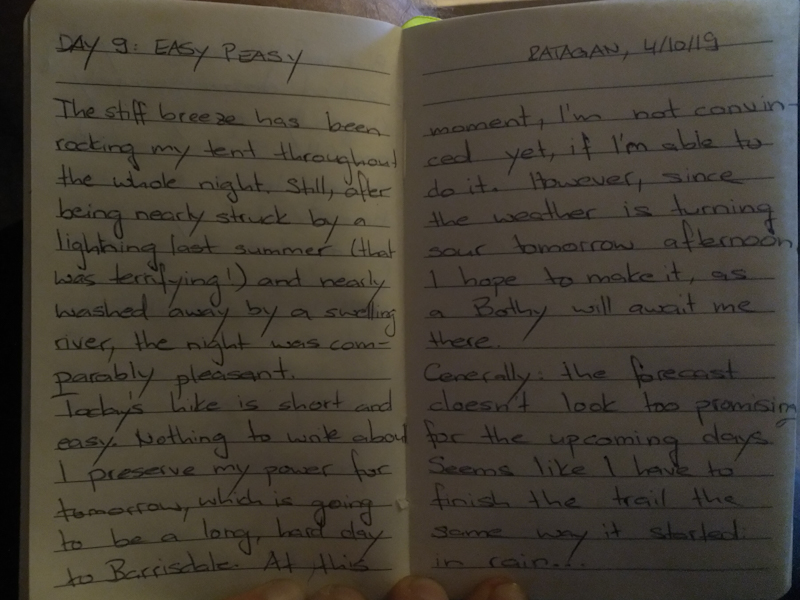 DAY 9: EASY PEASY
The stiff breeze has been
rocking my tent throughout
the whole night. Still, after
being nearly struck by a
lightning last summer (that
was terrifying!) and nearly
washed away by a swelling
river, the night was com-
parably pleasant.
Today's hike is short and
easy. Nothing to write about
I preserve my power for
tomorrow, which is going
to be a long, hard day
to Barrisdale. At this
RATAGAN, 4/10/19
moment, I'm not convin-
ced yet, if I'm able to
do it. However, since
the weather is turning
sour tomorrow afternoon,
I hope to make it, as
a Bothy will await me
there.
Generally: the forecast
doesn't look too promising
for the upcoming days.
Seems like I have to
finish the trail the
same way it started:
in rain...